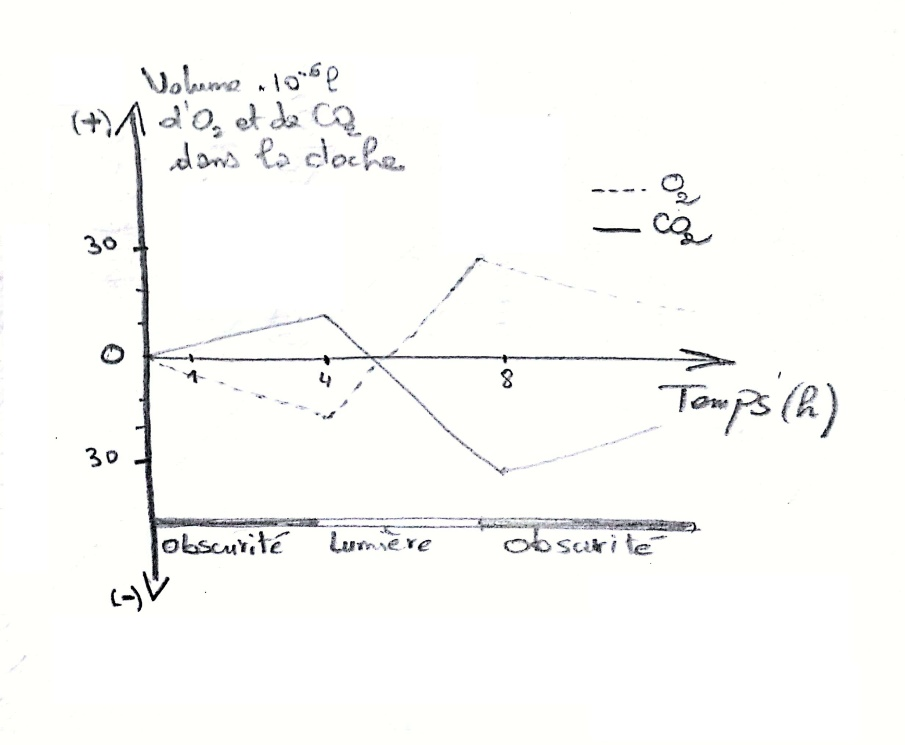 Volume .10⁻⁶ l
(+) d'O₂ et de CO₂
dans la cloche
O₂
CO₂
30
0
1 4 8
Temps (h)
30
Obscurité Lumière Obscurité
(-)